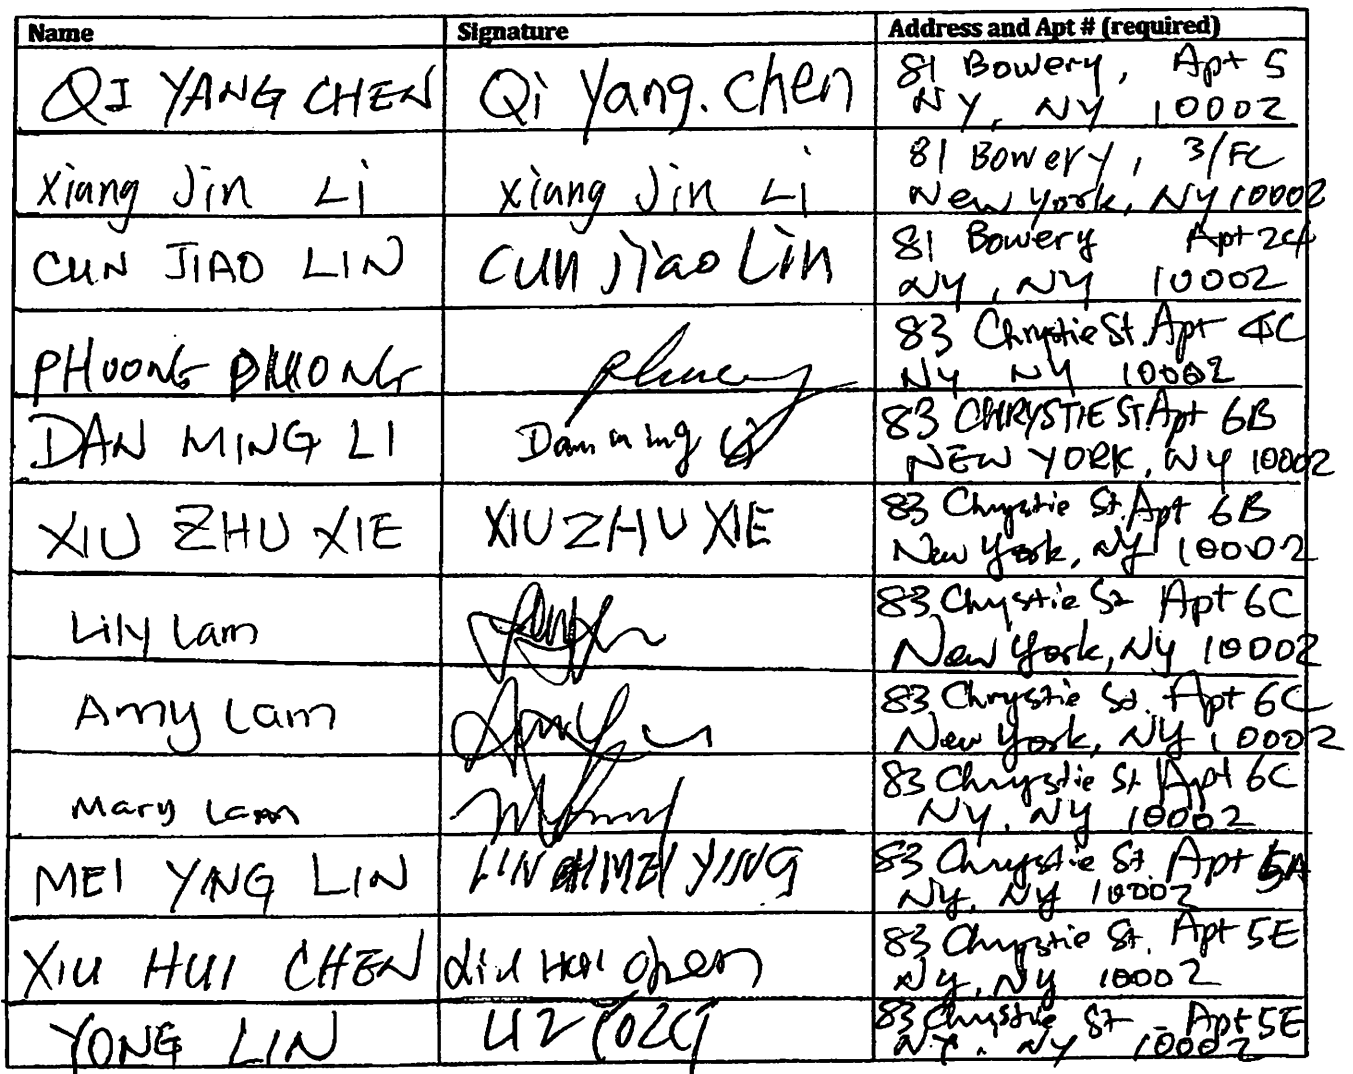 Name Signature Address and Apt # (required)
QI YANG CHEN Qi Yang. Chen 81 Bowery, Apt 5
NY, NY 10002
Xiang Jin Li Xiang Jin Li 81 Bowery, 3/FC
New York, NY 10002
CUN JIAO LIN CUN Jiao Lin 81 Bowery Apt
NY, NY 10002
PHUONG 83 Chrystie St. Apt 4C
NY NY 10002
DAN MING LI Dan ming Li 83 CHRYSTIE ST. Apt 6B
NEW YORK, NY 10002
XIU ZHU XIE XIU ZHU XIE 83 Chrystie St. Apt 6B
New York, NY 10002
Lily Lam 83 Chrystie St Apt 6C
New York, NY 10002
Amy Lam 83 Chrystie St. Apt 6C
New York, NY 10002
Mary Lam 83 Chrystie St Apt 6C
NY, NY 10002
MEI YNG LIN LIN MEI YING 83 Chrystie St. Apt 5A
NY, NY 10002
XIU HUI CHEN Hui Chen 83 Chrystie St. Apt 5E
NY, NY 10002
YONG LIN 83 Chrystie St - Apt 5E
NY. NY 10002